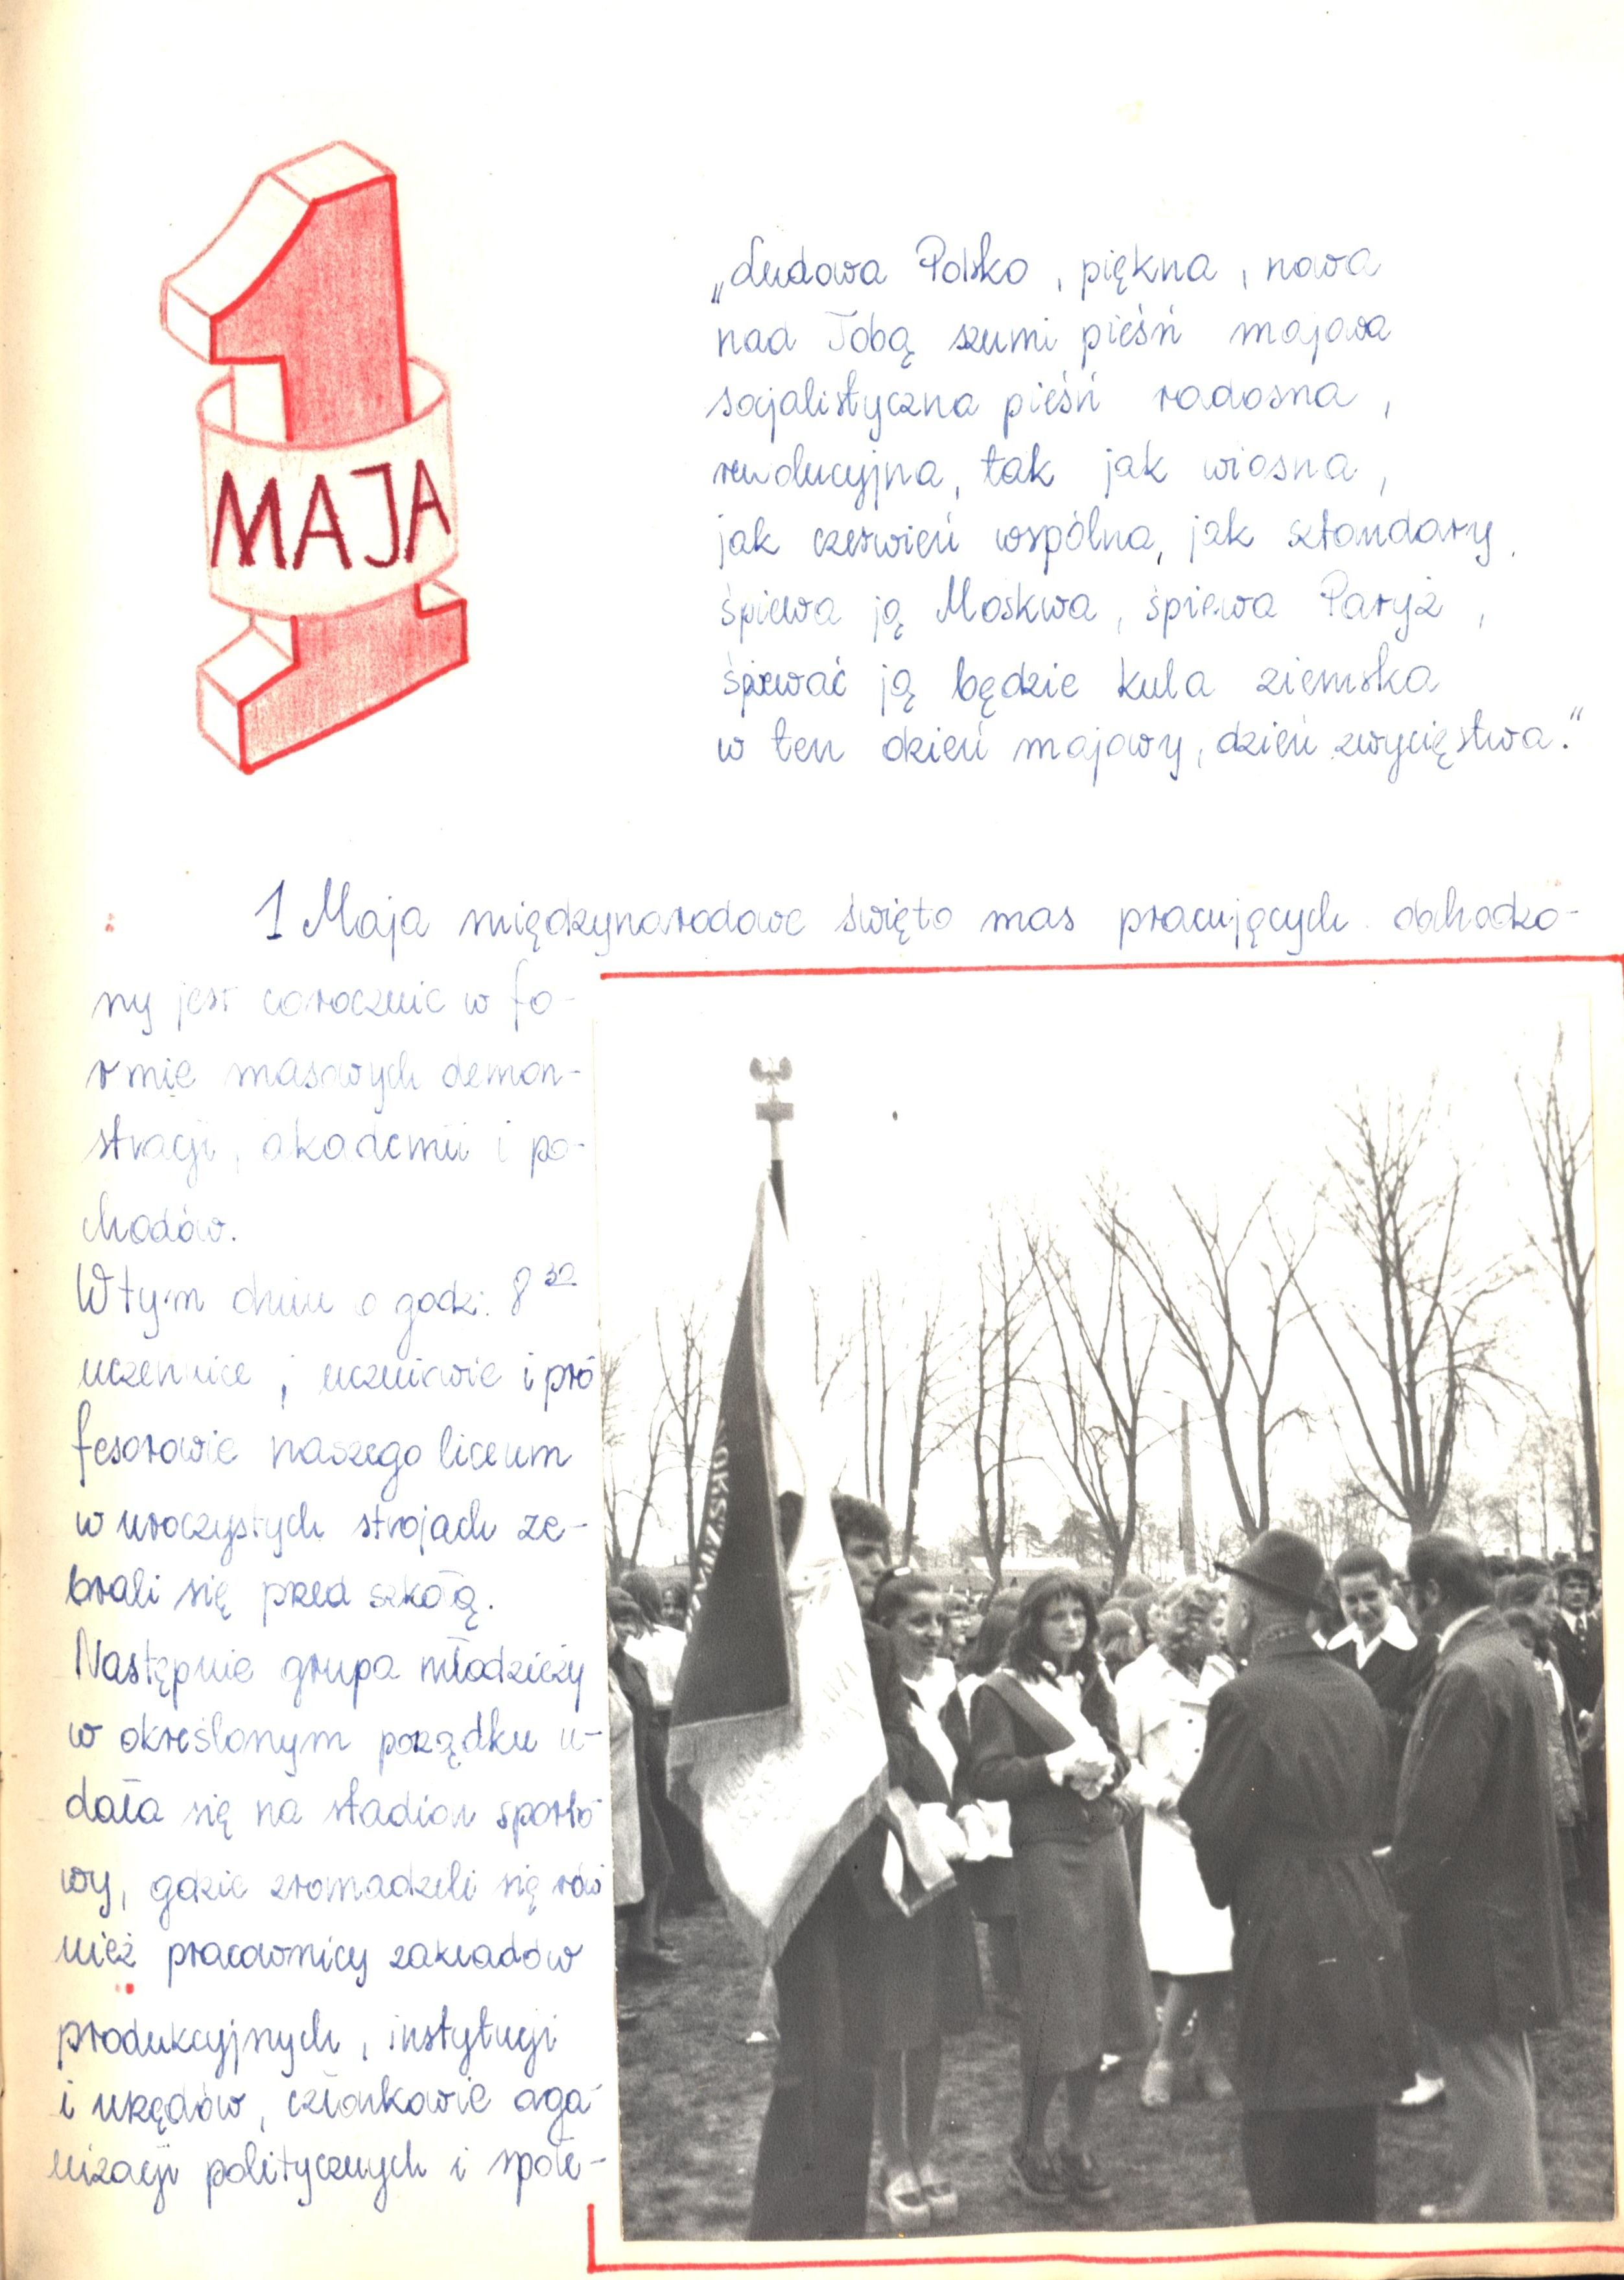 1
MAJA
„Ludowa Polsko, piękna, nowa
nad Tobą szumi pieśń majowa
socjalistyczna pieśń radosna,
rewolucyjna, tak jak wiosna,
jak czerwień wspólna, jak sztandary.
śpiewa ją Moskwa, śpiewa Paryż,
śpiewać ją będzie kula ziemska
w ten dzień majowy, dzień zwycięstwa."
1 Maja międzynarodowe święto mas pracujących obchodzo-
ny jest corocznie w fo-
rmie masowych demon-
stracji, akademii i po-
chodów.
W tym dniu o godz. 8 30
uczennice, uczniowie i pro
fesorowie naszego liceum
w uroczystych strojach ze-
brali się przed szkołą.
Następnie grupa młodzieży
w określonym porządku u-
dała się na stadion sporto
wy, gdzie zromadzili się rów
nież pracownicy zakładów
produkcyjnych, instytucji
i urzędów, członkowie oga-
nizacji politycznych i społe-